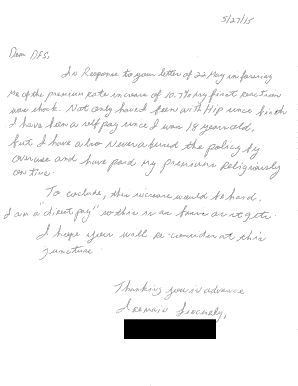 5/27/15
Dear DFS,
In Response to your letter of 22 May informing
me of the premium rate increase of 10.7% my first reaction
was shock. Not only have I been with Hip since birth
I have been a self pay since I was 18 years old,
but I have also never abused the policy by
overuse and have paid my premiums Religiously
on time.
To conclude, this increase would be hard.
I am a "direct pay" so this is as as it gets.
I hope you will re-consider at this
juncture.
Thanking you in advance
I remain Sincerely,